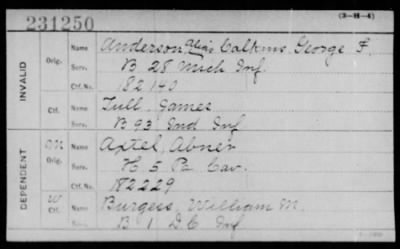 231250
(3-H-4)
INVALID
Orig. Name Anderson alias Calkins, George F.
Serv. B 28 Mich Inf.
Ctf. No. 182140
Ctf. Name Tull, James
Serv. B 93 Ind Inf
DEPENDENT
Orig. Name Axtel, Abner
Serv. H 5 Pa Cav.
Ctf. No. 182229
W
Ctf. Name Burgess, William M.
Serv. B 1 D C Inf